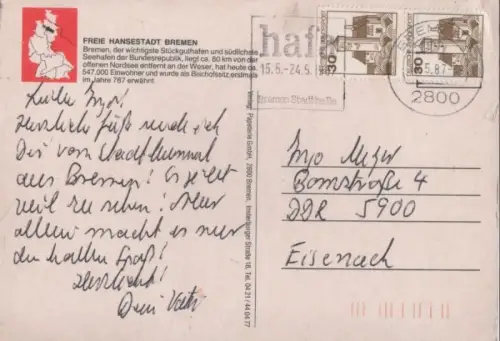 FREIE HANSESTADT BREMEN
Bremen, der wichtigste Stückguthafen und südlichste
Seehafen der Bundesrepublik, liegt ca. 80 km von der
offenen Nordsee entfernt an der Weser, hat heute
547.000 Einwohner und wurde als Bischofssitz erstmals
im Jahre 787 erwähnt.
hafa
15.5.-24.5.
Bremen Stadthalle
30
30
5.87
2800
Verlag: Papeterie GmbH, 2800 Bremen, Tel. 04 21 / 44 04 77
Lieber Ingo!
Herzliche Grüße sendet
Dir vom Stadtbummel
aus Bremen! Es gibt
viel zu sehen! Aber
allein macht es nur
den halben Spaß!
Herzlichst!
Dein Vater
Ingo
Bornstraße 4
DDR 5900
Eisenach